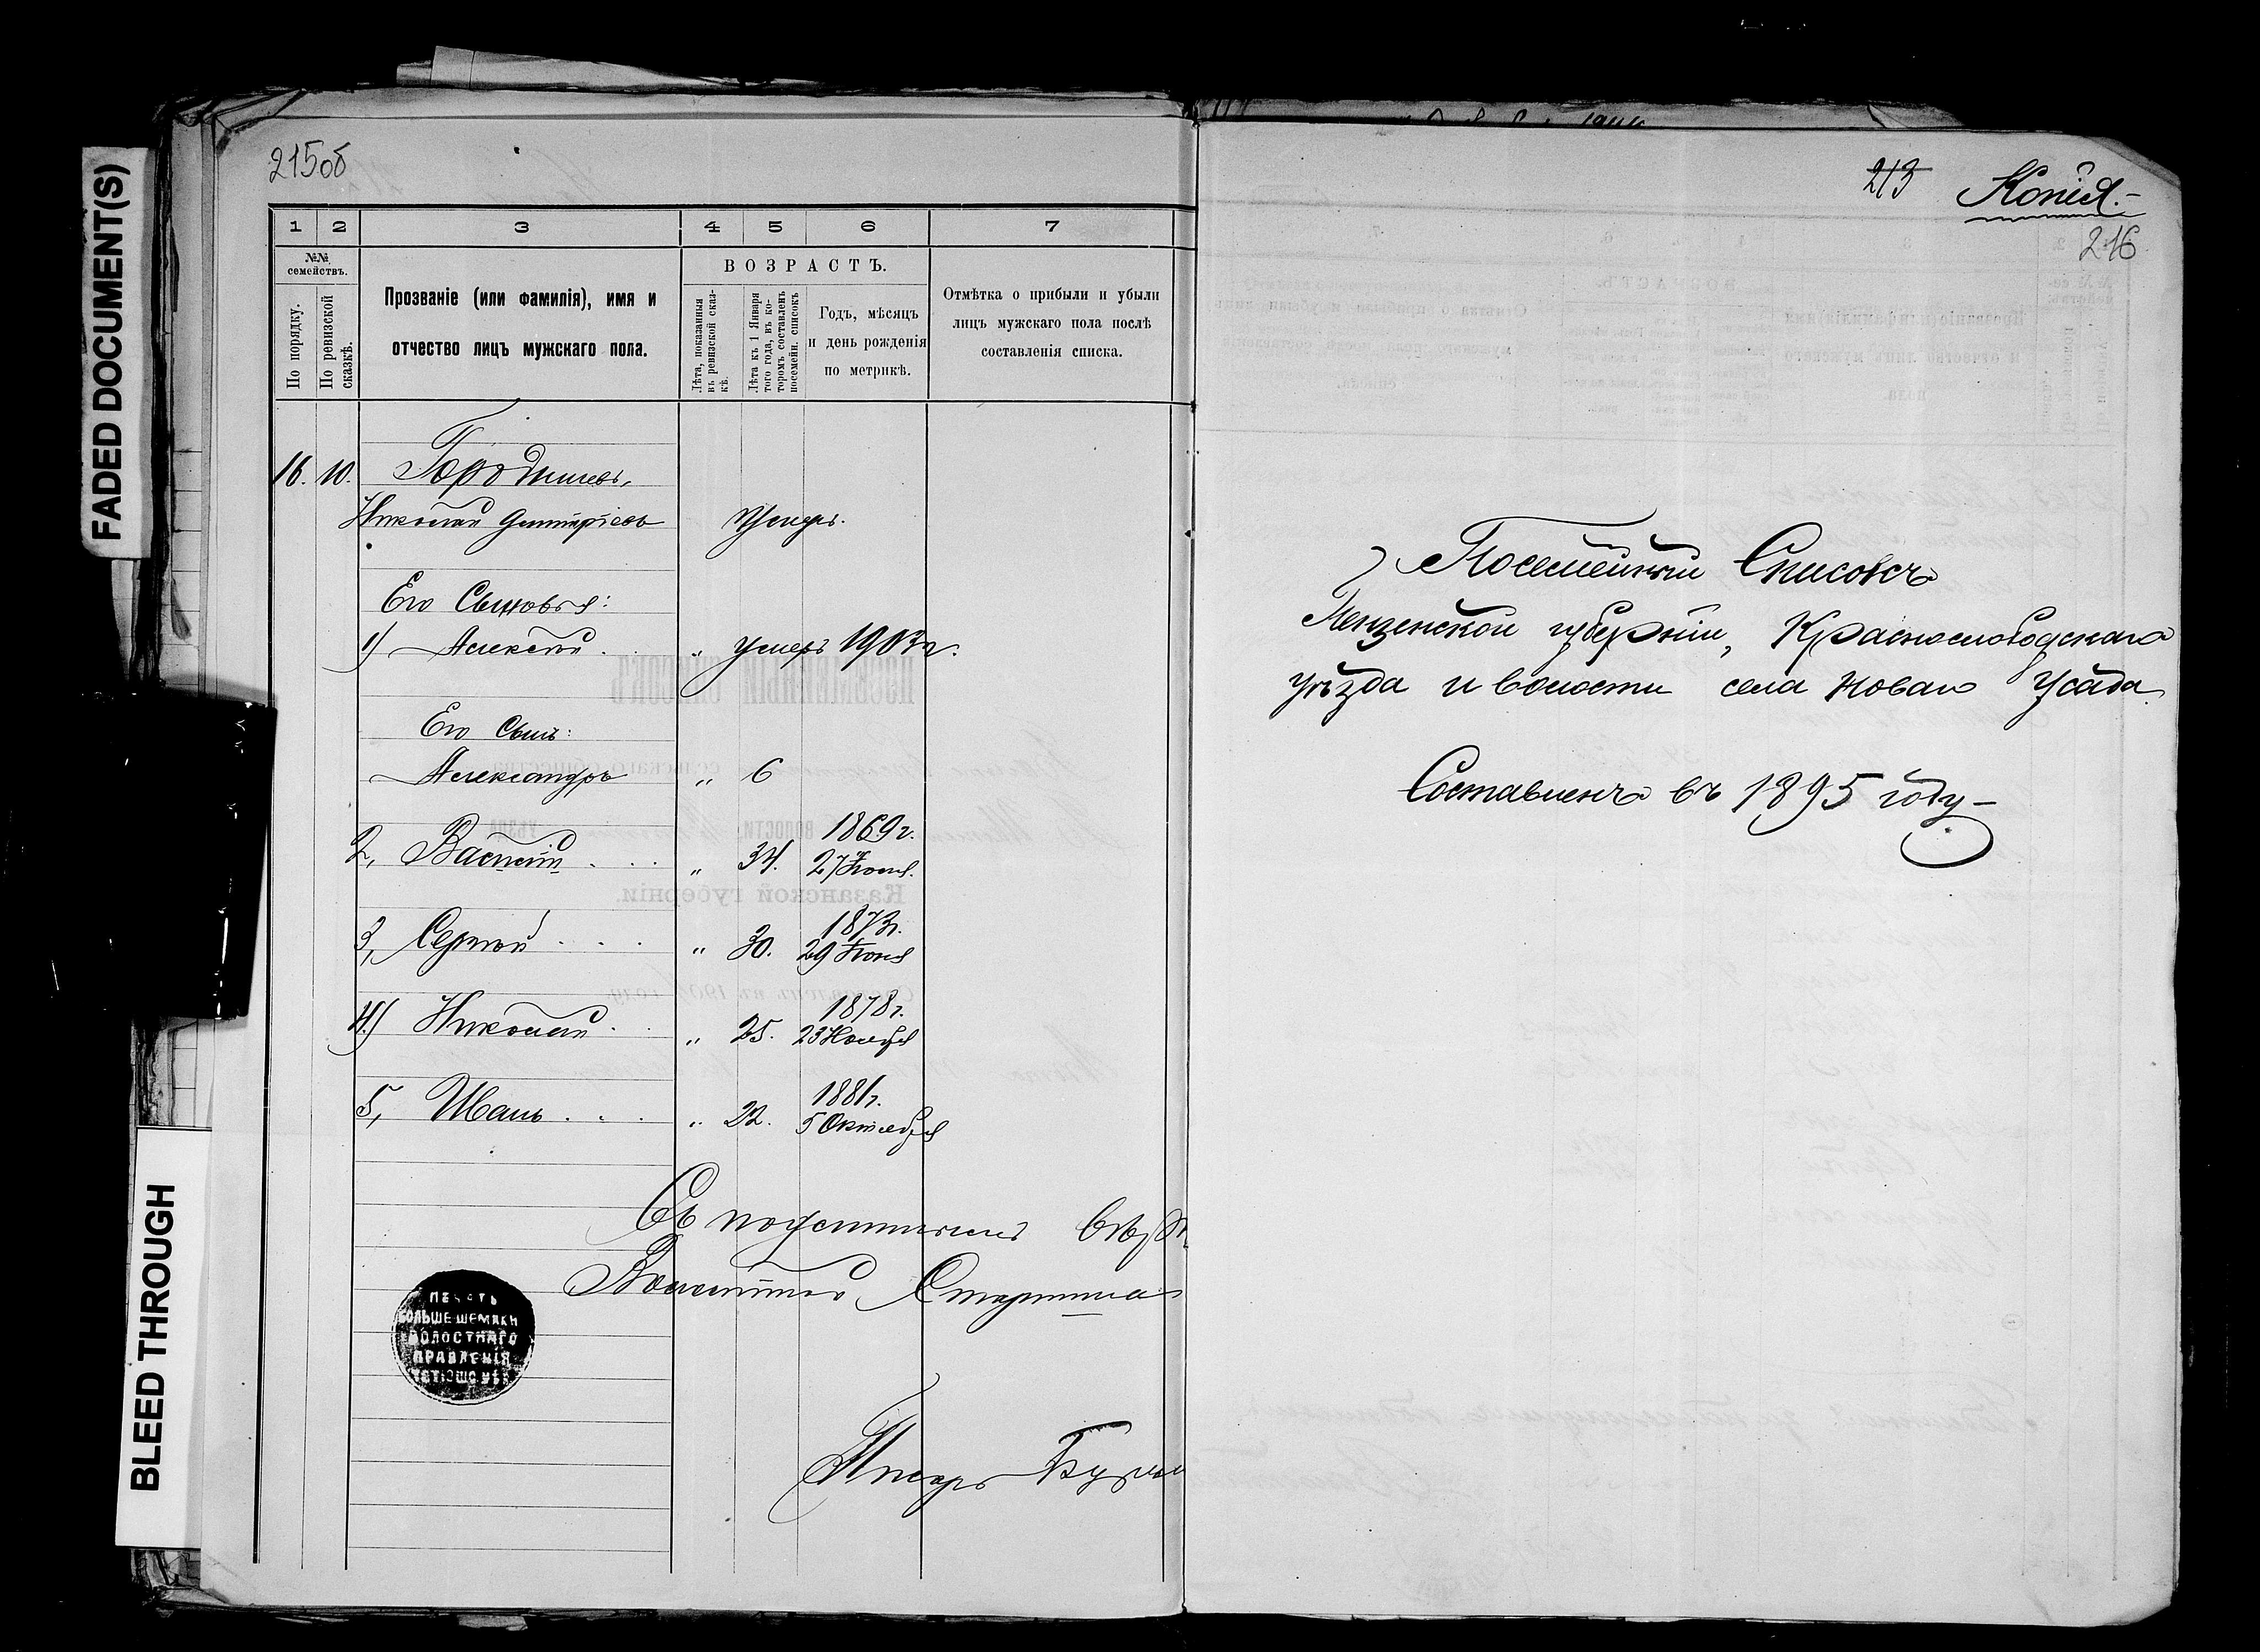 FADED DOCUMENT(S)
BLEED THROUGH
215об
1 2 3 4 5 6 7
№№ семействъ.
По порядку.
По ревизской сказкѣ.
Прозваніе (или фамилія), имя и
отчество лицъ мужскаго пола.
ВОЗРАСТЪ.
Лѣта, показанныя въ ревизской сказкѣ.
Лѣта къ 1 Января того года, въ которомъ составленъ посемейн. списокъ
Годъ, мѣсяцъ
и день рожденія
по метрикѣ.
Отмѣтка о прибыли и убыли
лицъ мужскаго пола послѣ
составленія списка.
16. 10.
Николай Дмитріевъ умеръ.
Его Сыновья:
1) Алексѣй . . " умеръ 1903г.
Его Сынъ:
Александръ " 6
1869г.
2, Василій . . . " 34. 27 Іюля.
1873г.
3, Сергѣй . . . " 30. 29 Іюня
1878г.
4) Николай . . " 25. 23 Ноября
1881г.
5, Иванъ . . . " 22. 5 Октября
Съ подлиннымъ вѣрн
Волостной Старшина
ПЕЧАТЬ
БОЛЬШЕ ШЕМЯКИ
ВОЛОСТНАГО
ПРАВЛЕНІЯ
ТЕТЮШ. У.
Писарь
213 Копія.-
216
Посемейный Списокъ
Пензенской губерніи, Краснослободскаго
уѣзда и волости села Новаго Усада
Составленъ въ 1895 году-